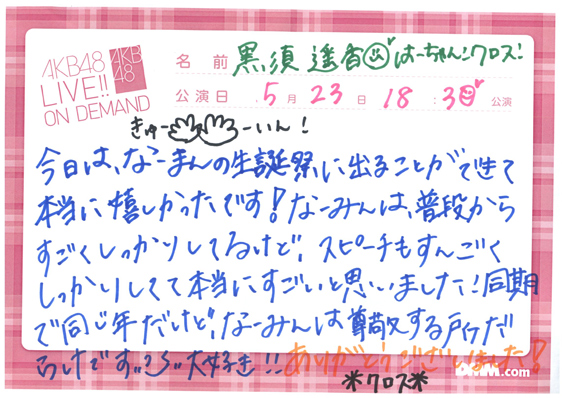 AKB48
LIVE!!
ON DEMAND
AKB
48
名前 黒須 遥香 はーちゃん!クロス!
公演日 5月23日 18:30 公演
きゅー いーん!
今日は、なーまんの生誕祭に出ることができて
本当に嬉しかったです!なーみんは、普段から
すごくしっかりしてるけど、スピーチもすんごく
しっかりしてて本当にすごいと思いました!同期
で同じ年だけど、なーみんは尊敬する所だ
らけです。大好き!!ありがとうございました!
*クロス*
DMM.com